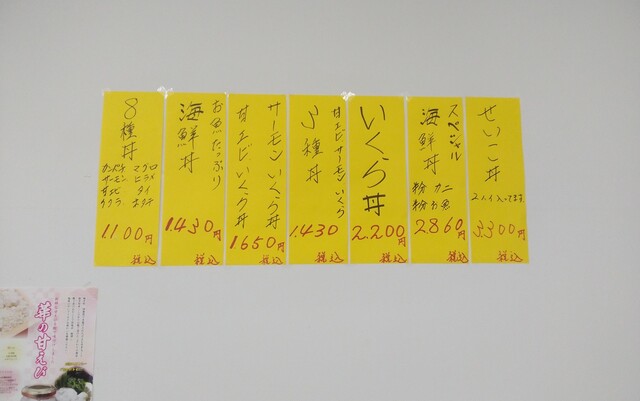 せいこ丼
2ハイ入ってます
3300円
税込
スペシャル
海鮮丼
2860円
税込
いくら丼
2.200円
税込
甘エビサーモンいくら
3種丼
1.430
税込
サーモンいくら丼
甘エビいくら丼
1650円
税込
お魚たっぷり
海鮮丼
1.430円
税込
8種丼
マグロ
ヒラメ
タイ
ホタテ
カンパチ
サーモン
甘エビ
イクラ
1.100円
税込
華の甘えび